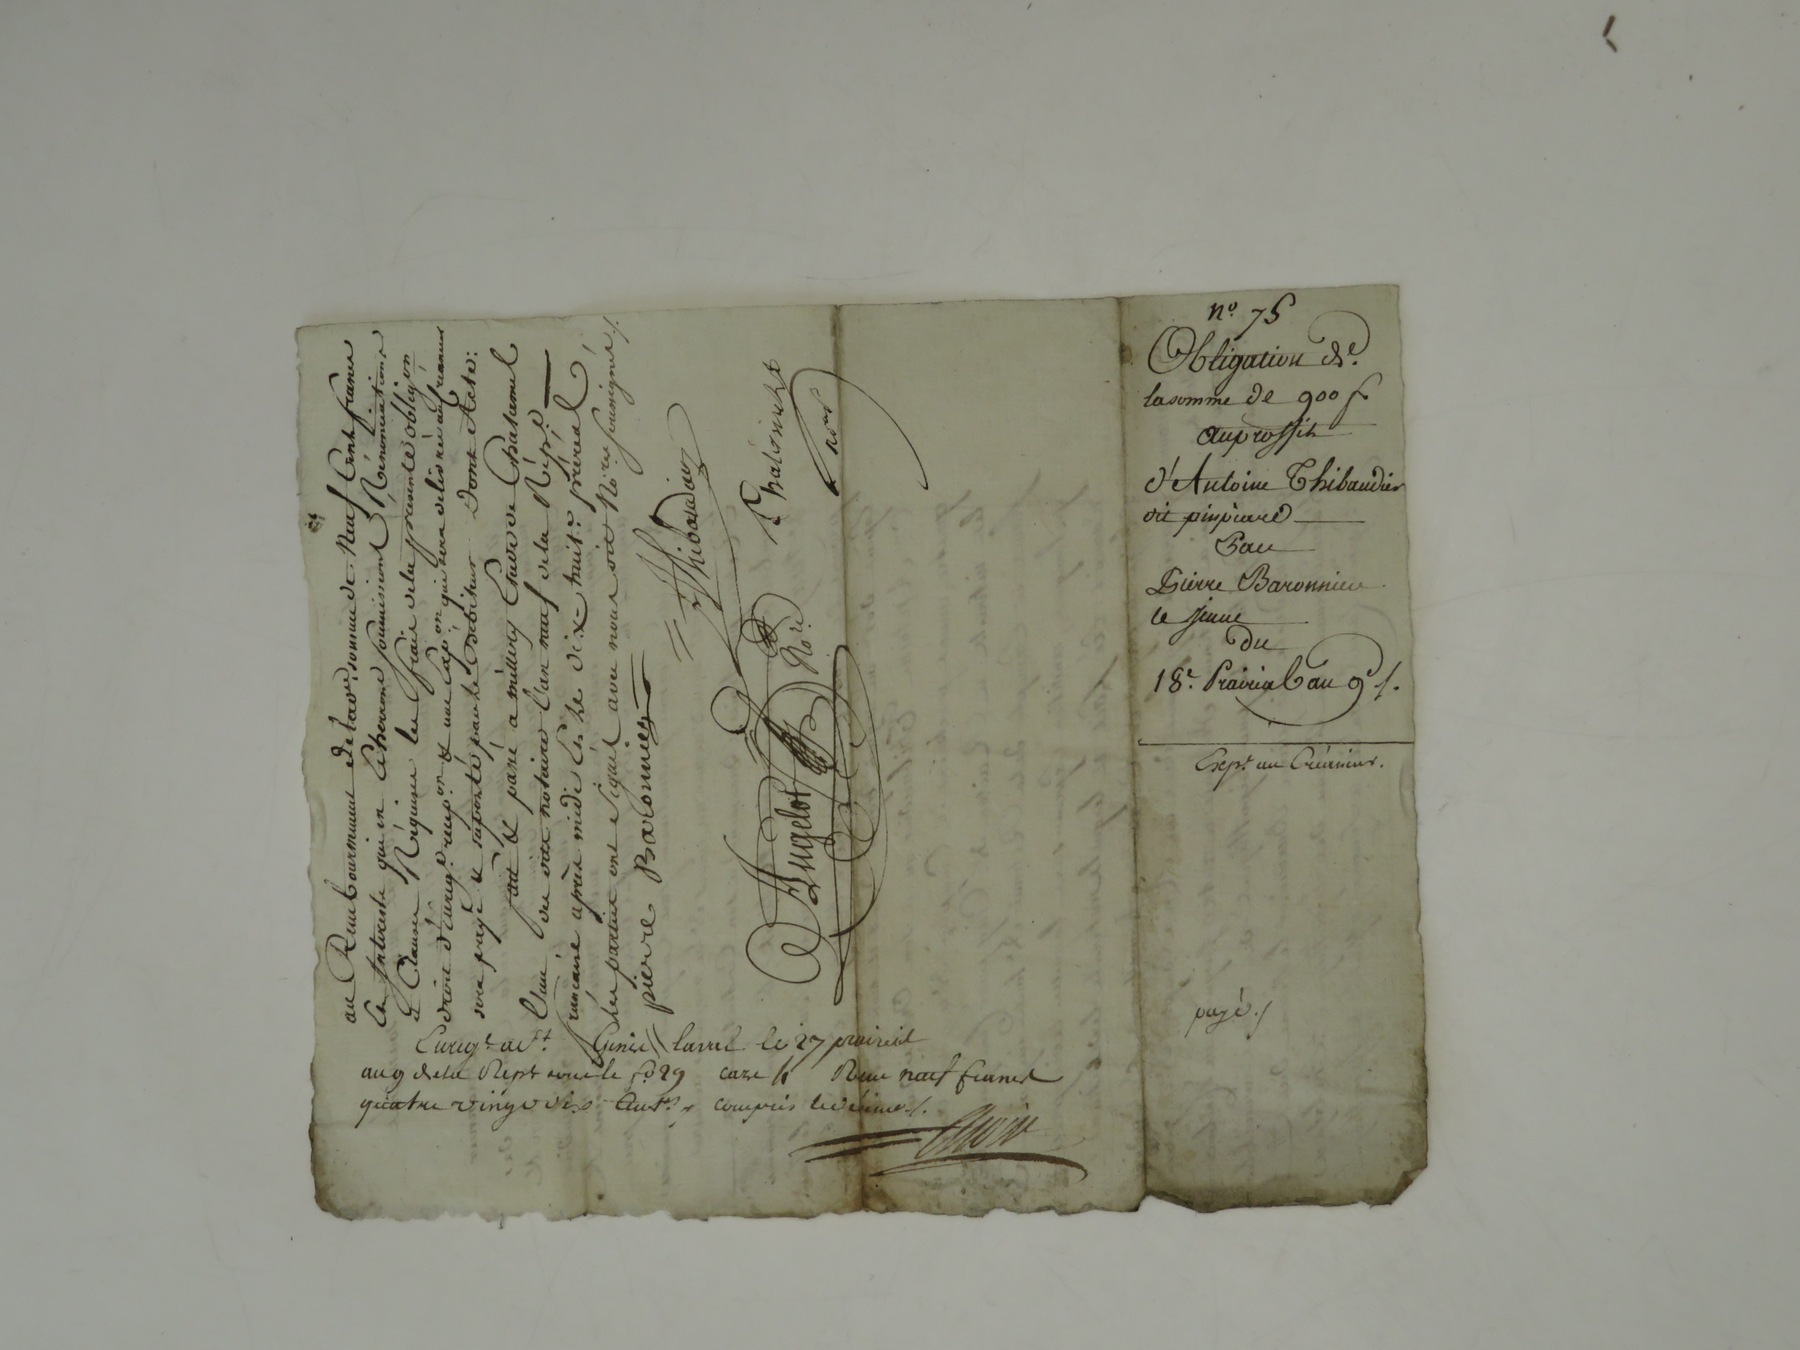 nº. 75
Obligation de.
la somme de 900 f
au proffit
d'Antoine Thibaudier
dit pinpiard
Par
Pierre Baronnier
le jeune
du
18e. Prairial an 9e /.
Exp.on au Créancier.
payé /
au Remboursement de lade. somme de Neuf Cent francs
les Interests qui en Cherront soumissions Renonciations
& Clauses Requises les frais de la presente obligon
droit d'Enreg. & une Exp.on qui sera delivrée au
sera payé & suporté par le debiteur Dont Acte:
fait & passé a Etude de Chasamel
L'un des dits notaires l'an neuf de la Répe.
française après midi Le dix-huit prairial
les parties ont Signé avec nous dits Nores soussignés /.
pierre Baronnier
Thibaudier
nore
Bugelot Nore
Enregt. a St. Genis laval le 27 prairial
an 9 de la Repe. sous le fo 29 case 4 Reçu neuf francs
quatre vingt dix Cent. y compris le décime /.